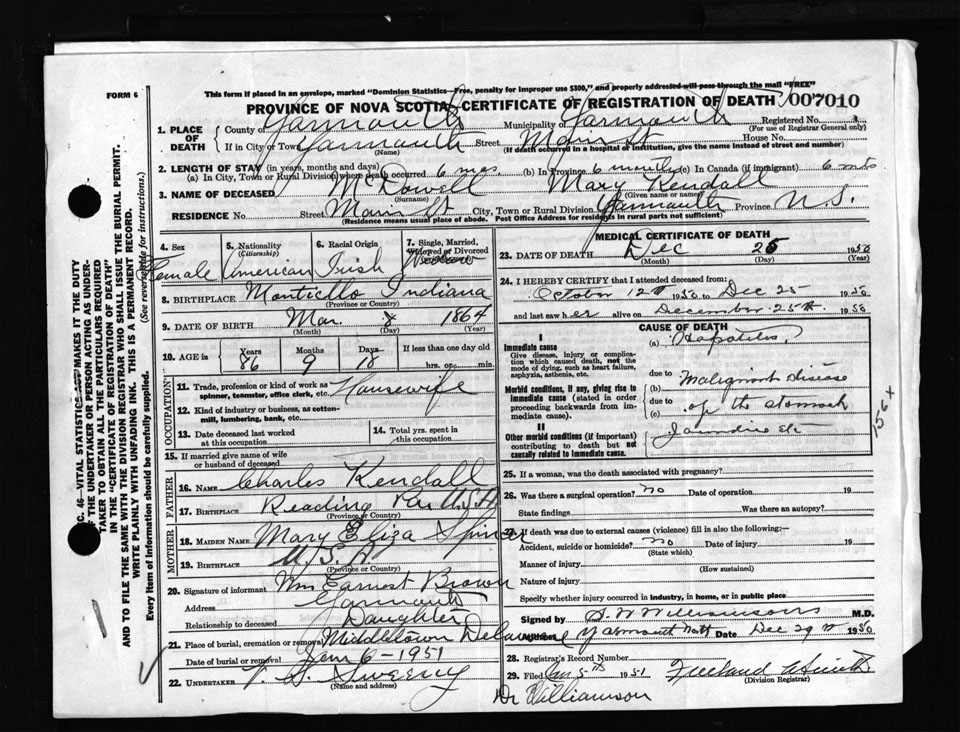 FORM 6
This form if placed in an envelope, marked "Dominion Statistics—Free, penalty for improper use $300," and properly addressed will pass through the mail "FREE"
PROVINCE OF NOVA SCOTIA—CERTIFICATE OF REGISTRATION OF DEATH 007010
1. PLACE OF DEATH
County of Yarmouth Municipality of Yarmouth Registered No.
(For use of Registrar General only)
If in City or Town Yarmouth Street Main St House No.
(Name) (If death occurred in a hospital or institution, give the name instead of street and number)
2. LENGTH OF STAY (in years, months and days)
(a) In City, Town or Rural Division where death occurred 6 mos (b) In Province 6 months (c) In Canada (if immigrant) 6 mts
3. NAME OF DECEASED McDowell Mary Kendall
(Surname) (Given name or names)
RESIDENCE No. Street Main St City, Town or Rural Division Yarmouth Province N.S.
(Residence means usual place of abode. Post Office Address for residents in rural parts not sufficient)
4. Sex Female
5. Nationality (Citizenship) American
6. Racial Origin Irish
7. Single, Married, Widowed or Divorced Widow
8. BIRTHPLACE Monticello Indiana
(Province or Country)
9. DATE OF BIRTH Mar. 8 1864
(Month) (Day) (Year)
10. AGE in Years Months Days If less than one day old
86 9 18 hrs. or min.
OCCUPATION
11. Trade, profession or kind of work as spinner, teamster, office clerk, etc. Housewife
12. Kind of industry or business, as cotton-mill, lumbering, bank, etc.
13. Date deceased last worked at this occupation
14. Total yrs. spent in this occupation
15. If married give name of wife or husband of deceased
FATHER
16. NAME Charles Kendall
17. BIRTHPLACE Reading Pa U.S.A.
(Province or Country)
MOTHER
18. MAIDEN NAME Mary Eliza
19. BIRTHPLACE U.S.A.
(Province or Country)
20. Signature of informant Mrs Earnest Brown
Address Yarmouth
Relationship to deceased Daughter
21. Place of burial, cremation or removal Middletown Delaware
Date of burial or removal Jan 6 - 1951
22. UNDERTAKER V. S. Sweeny
(Name and address)
MEDICAL CERTIFICATE OF DEATH
23. DATE OF DEATH Dec 25 1950
(Month) (Day) (Year)
24. I HEREBY CERTIFY that I attended deceased from:
October 12th 1950 to Dec 25 1950
and last saw her alive on December 25th 1950
CAUSE OF DEATH
I
Immediate cause
Give disease, injury or complication which caused death, not the mode of dying, such as heart failure, asphyxia, asthenia, etc.
(a)
due to
Morbid conditions, if any, giving rise to immediate cause (stated in order proceeding backwards from immediate cause).
(b) Malignant disease
due to
(c) of the stomach
II
Other morbid conditions (if important) contributing to death but not causally related to immediate cause.
Jaundice etc
25. If a woman, was the death associated with pregnancy?
26. Was there a surgical operation? no Date of operation 19
State findings Was there an autopsy?
27. If death was due to external causes (violence) fill in also the following:—
Accident, suicide or homicide? no Date of injury 19
(State which)
Manner of injury
(How sustained)
Nature of injury
Specify whether injury occurred in industry, in home, or in public place
Signed by S. W. Williamson M.D.
Address Yarmouth North Date Dec 29th 1950
28. Registrar's Record Number
29. Filed Jan 5th 1951 Freeland
(Division Registrar)
Dr Williamson
C. 46—VITAL STATISTICS ACT MAKES IT THE DUTY
OF THE UNDERTAKER OR PERSON ACTING AS UNDER-
TAKER TO OBTAIN ALL THE PARTICULARS REQUIRED
IN THE "CERTIFICATE OF REGISTRATION OF DEATH"
AND TO FILE THE SAME WITH THE DIVISION REGISTRAR WHO SHALL ISSUE THE BURIAL PERMIT.
WRITE PLAINLY WITH UNFADING INK. THIS IS A PERMANENT RECORD.
Every item of information should be carefully supplied. (See reverse side for instructions.)